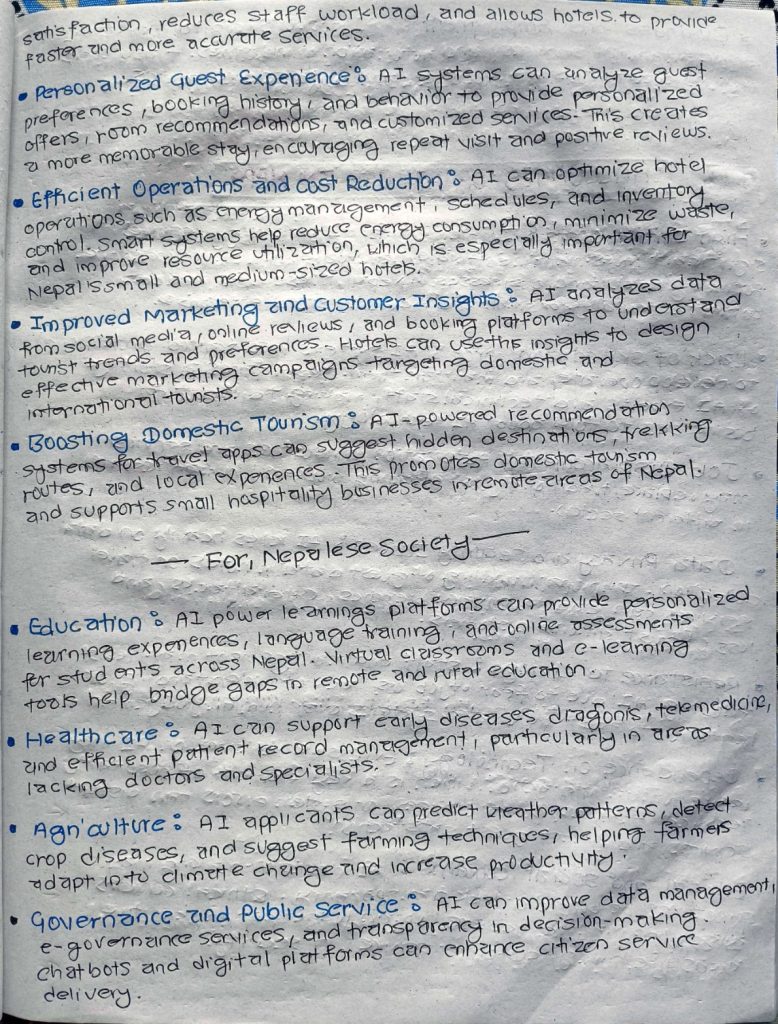 satisfaction, reduces staff workload, and allows hotels to provide
faster and more accurate services.
• Personalized Guest Experience : AI systems can analyze guest
preferences, booking history, and behavior to provide personalized
offers, room recommendations, and customized services. This creates
a more memorable stay, encouraging repeat visit and positive reviews.
• Efficient Operations and Cost Reduction : AI can optimize hotel
operations such as energy management, schedules, and inventory
control. Smart systems help reduce energy consumption, minimize waste,
and improve resource utilization, which is especially important for
Nepal's small and medium-sized hotels.
• Improved Marketing and Customer Insights : AI analyzes data
from social media, online reviews, and booking platforms to understand
tourist trends and preferences. Hotels can use this insights to design
effective marketing campaigns targeting domestic and
international tourists.
• Boosting Domestic Tourism : AI-powered recommendation
systems for travel apps can suggest hidden destinations, trekking
routes, and local experiences. This promotes domestic tourism
and supports small hospitality businesses in remote areas of Nepal.
— For, Nepalese Society —
• Education : AI power learnings platforms can provide personalized
learning experiences, language training, and online assessments
for students across Nepal. Virtual classrooms and e-learning
tools help bridge gaps in remote and rural education.
• Healthcare : AI can support early diseases dragonis, telemedicine,
and efficient patient record management, particularly in areas
lacking doctors and specialists.
• Agriculture : AI applicants can predict weather patterns, detect
crop diseases, and suggest farming techniques, helping farmers
adapt into climate change and increase productivity.
• Governance and Public Service : AI can improve data management,
e-governance services, and transparency in decision-making.
Chatbots and digital platforms can enhance citizen service
delivery.